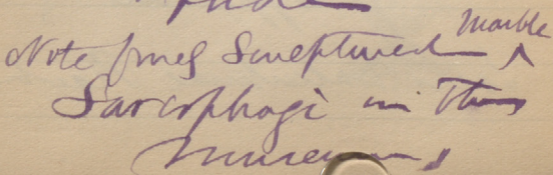 Note finely Sculptured marble
Sarcophagi in this
museum